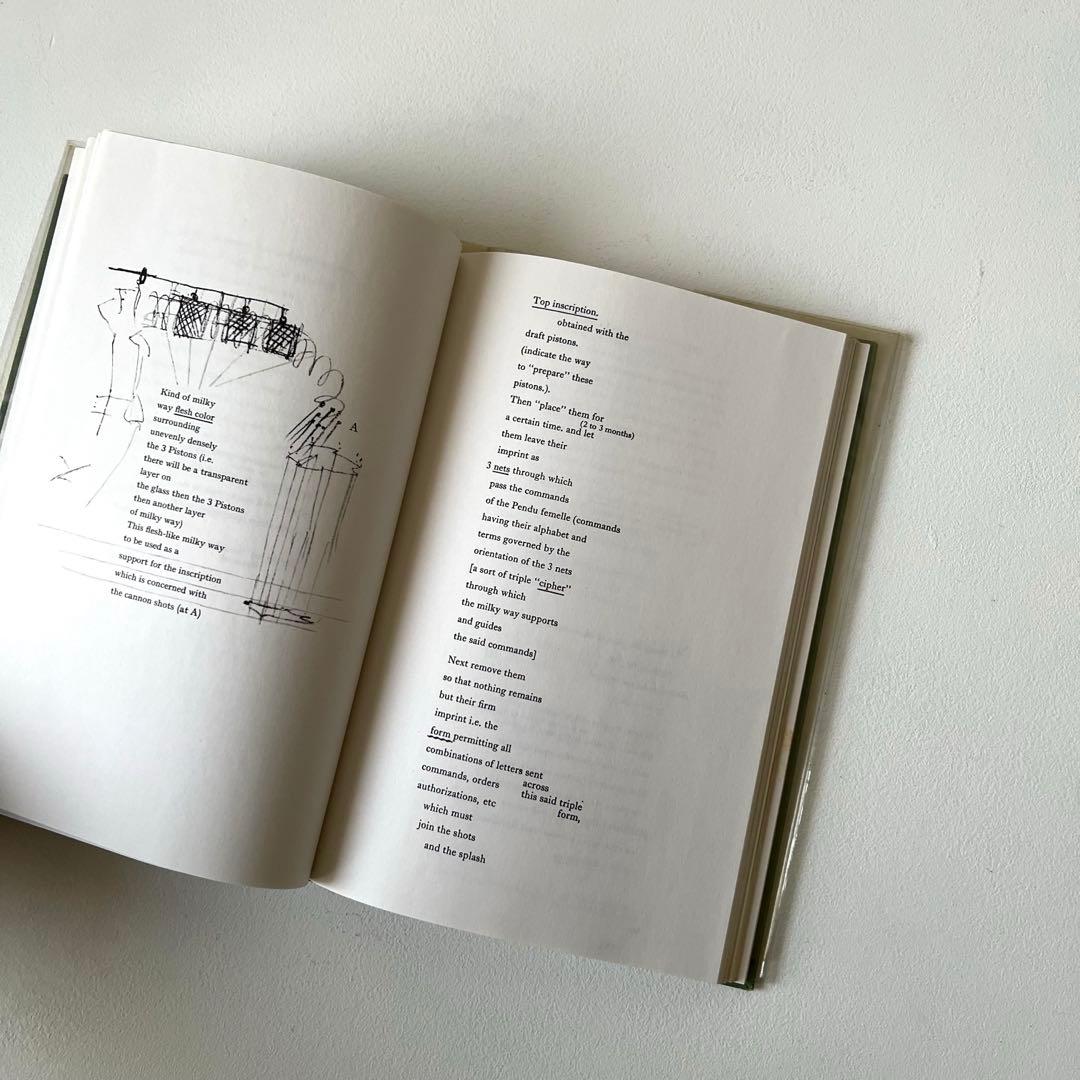 Kind of milky
way flesh color
surrounding
unevenly densely
the 3 Pistons (i.e.
there will be a transparent
layer on
the glass then the 3 Pistons
then another layer
of milky way)
This flesh-like milky way
to be used as a
support for the inscription
which is concerned with
the cannon shots (at A)
A
Top inscription.
obtained with the
draft pistons.
(indicate the way
to "prepare" these
pistons.).
Then "place" them for
(2 to 3 months)
a certain time. and let
them leave their
imprint as
3 nets through which
pass the commands
of the Pendu femelle (commands
having their alphabet and
terms governed by the
orientation of the 3 nets
[a sort of triple "cipher"
through which
the milky way supports
and guides
the said commands]
Next remove them
so that nothing remains
but their firm
imprint i.e. the
form permitting all
combinations of letters sent
commands, orders across
authorizations, etc this said triple
which must form,
join the shots
and the splash